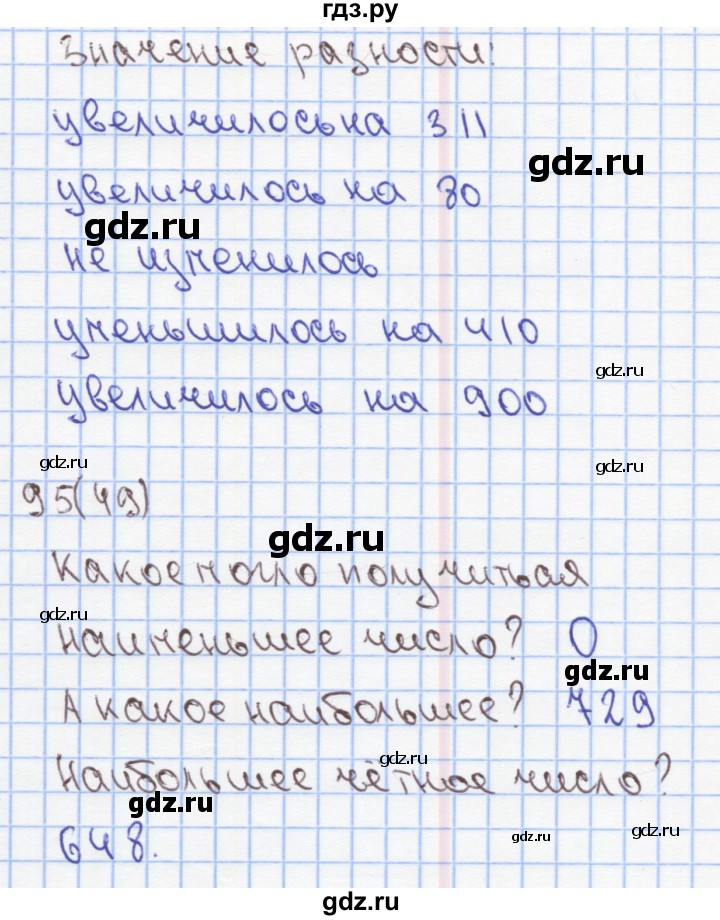 гдз.ру
Значение разности:
увеличилось на 311
gdz.ru
увеличилось на 80
gdz.ru
не изменилось
уменьшилось на 410
gdz.ru
увеличилось на 900
gdz.ru
gdz.ru
95(49)
gdz.ru
Какое могло получиться
gdz.ru
наименьшее число? 0
gdz.ru
А какое наибольшее? 729
gdz.ru
Наибольшее чётное число?
gdz.ru
648.
gdz.ru
gdz.ru
gdz.ru